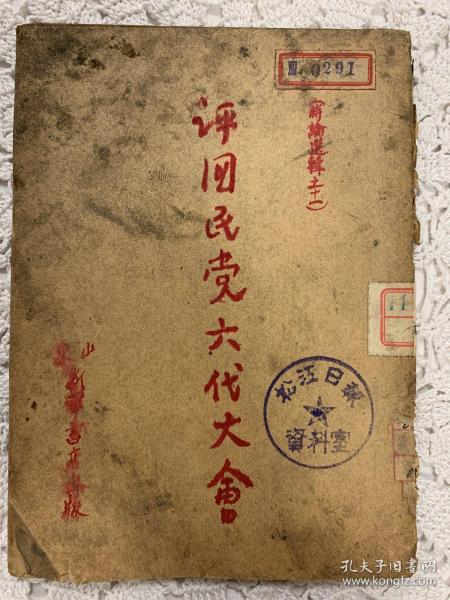 Ⅲ 0291
(時論選輯之十一)
評国民党六代大會
11
松江日報
資料室
山東新華書店出版
孔夫子旧书网
www.kongfz.com